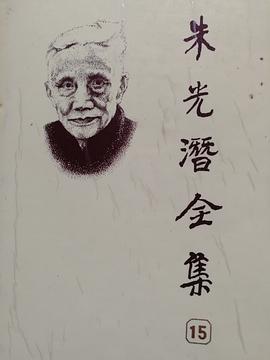 朱光潛全集
15